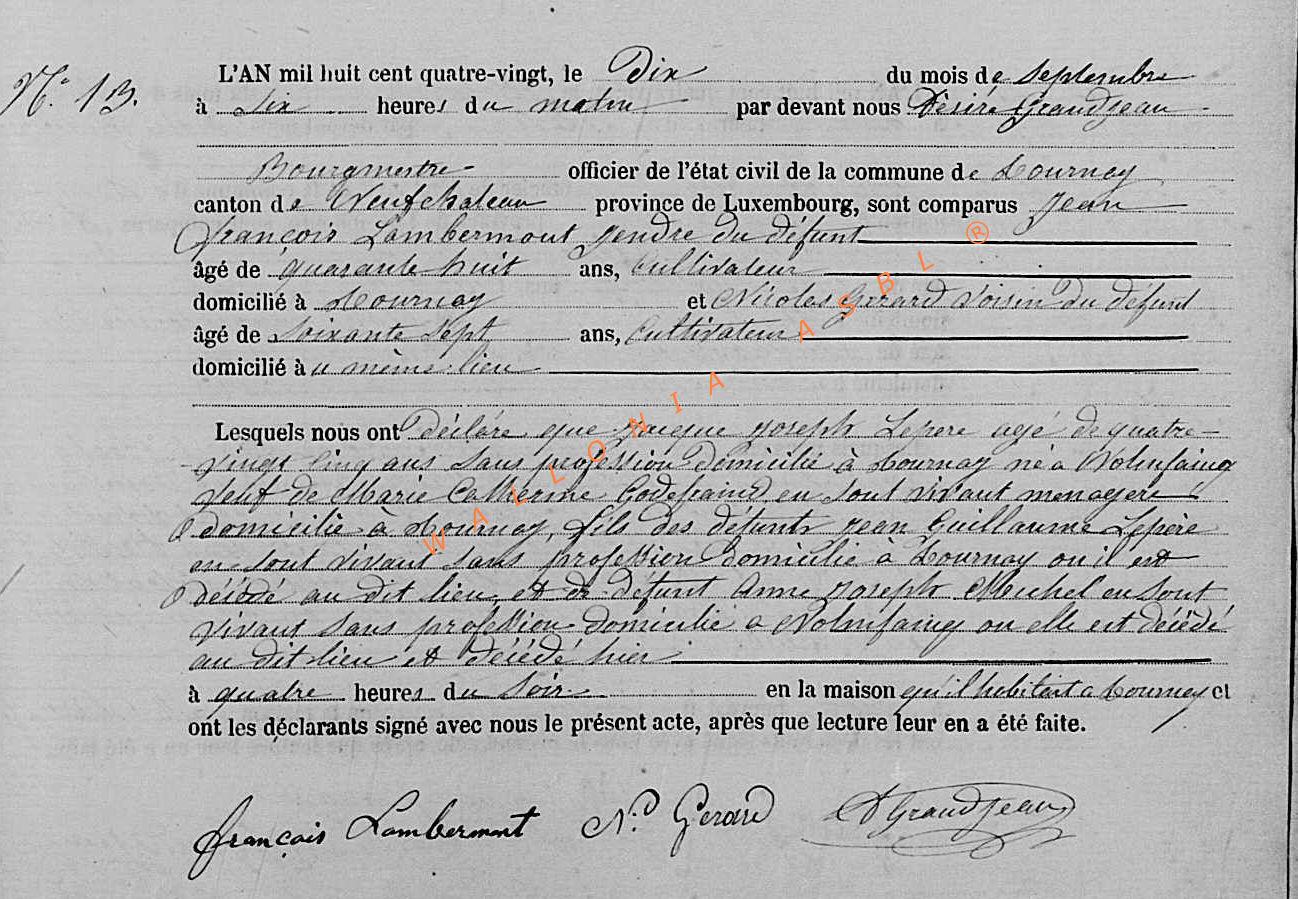 N.° 13.
L'AN mil huit cent quatre-vingt, le Dix du mois de Septembre
à Six heures du matin par devant nous Désiré Grandjean
Bourgmestre officier de l'état civil de la commune de Tournay
canton de Neufchateau province de Luxembourg, sont comparus Jean
François Lambermont gendre du défunt
âgé de quarante huit ans, Cultivateur
domicilié à Tournay et Nicolas Gerard Voisin du défunt
âgé de Soixante Sept ans, Cultivateur
domicilié àu même lieu
Lesquels nous ont déclaré que Joseph Lepere agé de quatre-
vingt Cinq ans Sans profession domicilié à Tournay né a Nolinfaing
Veuf de Marie Catherine en Sont vivant menagere
domicilié à Tournay, fils des défunts Jean Guillaume Lepère
en sont vivant sans profession domicilie à Tournay ou il est
décédé au dit lieu et de défunt Anne Joseph Michel en sont
vivant Sans profession domicilié a Nolinfaing ou elle est décédé
au dit lieu et décédé hier
à quatre heures du Soir en la maison qu'il habitait a Tournay et
ont les déclarants signé avec nous le présent acte, après que lecture leur en a été faite.
françois Lambermont N. Gerard D Grandjean
WALLONIA ASBL ®